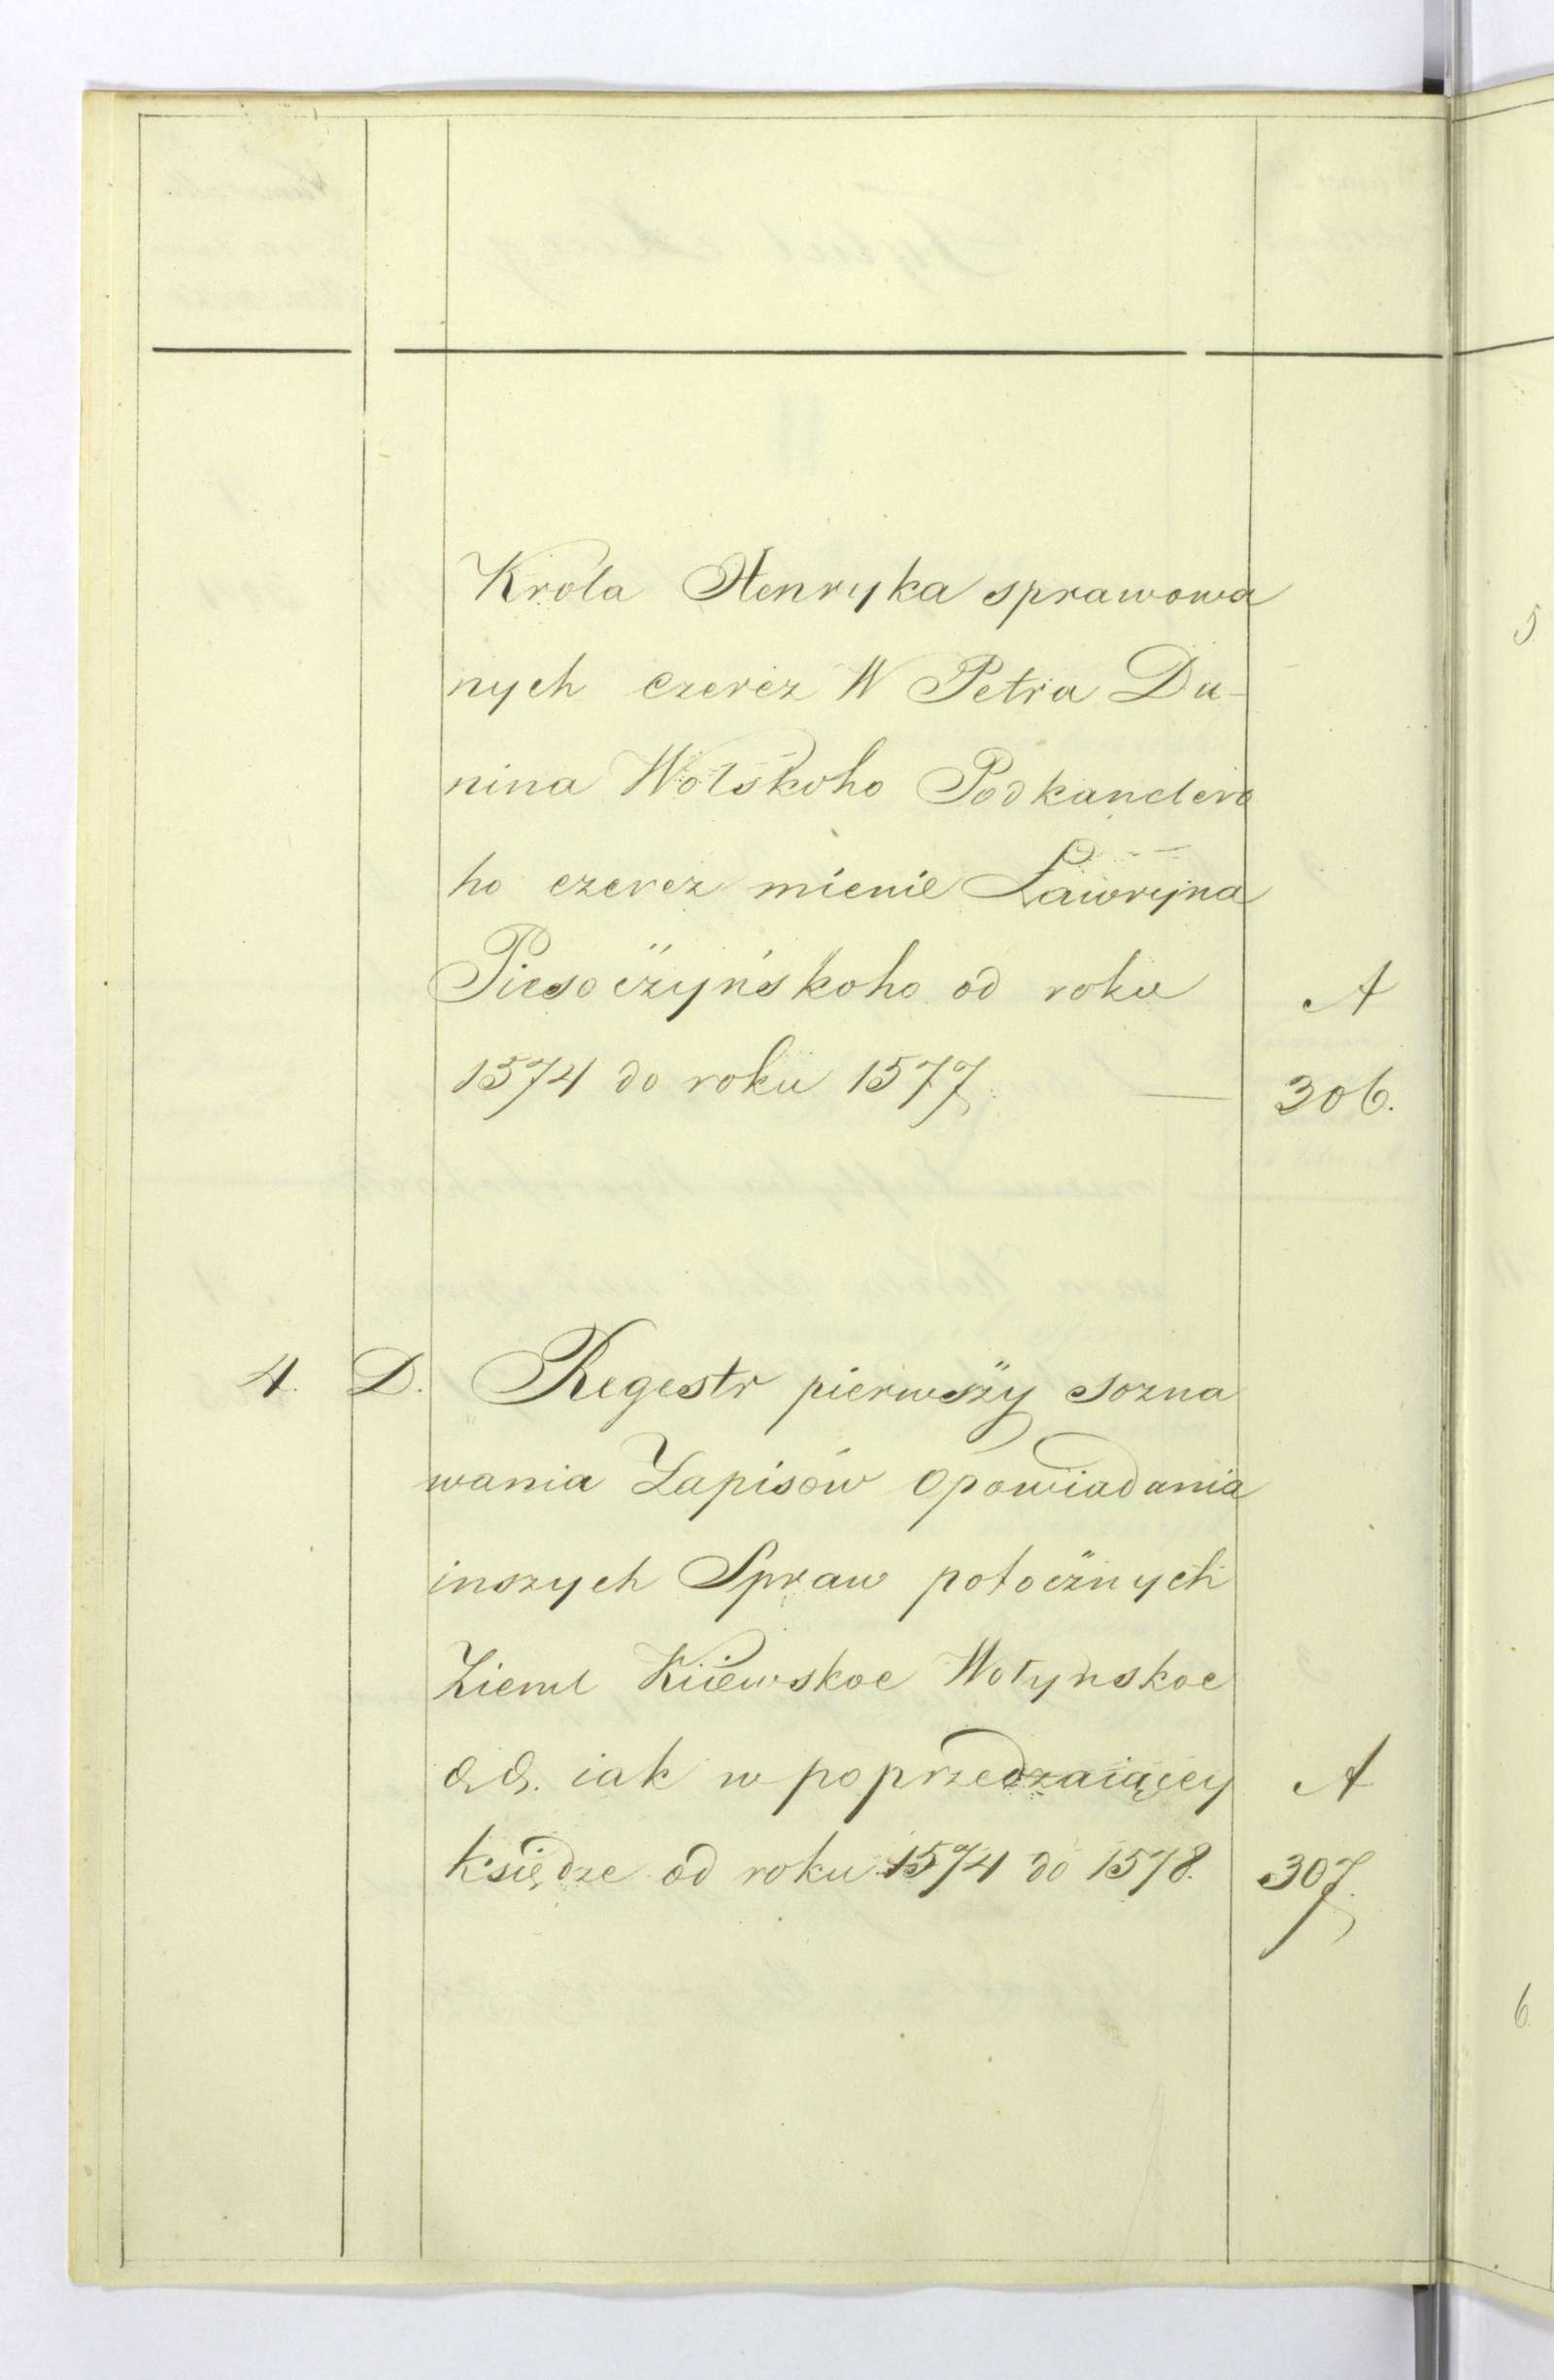 Króla Henryka sprawowa
nych czerez W Petra Du-
nina Wolskoho Podkanclero
ho czerez mienie Ławryna
Piesoczyńskoho od roku A
1574 do roku 1577 — 306.
4. D. Regestr pierwszy sozna
wania Zapisów opowiadania
inszych Spraw potocznych
Zieml Kiiewskoe Wołyńskoe
&&. iak w poprzedzaiącey A
księdze od roku 1574 do 1578. 307.
5
6.